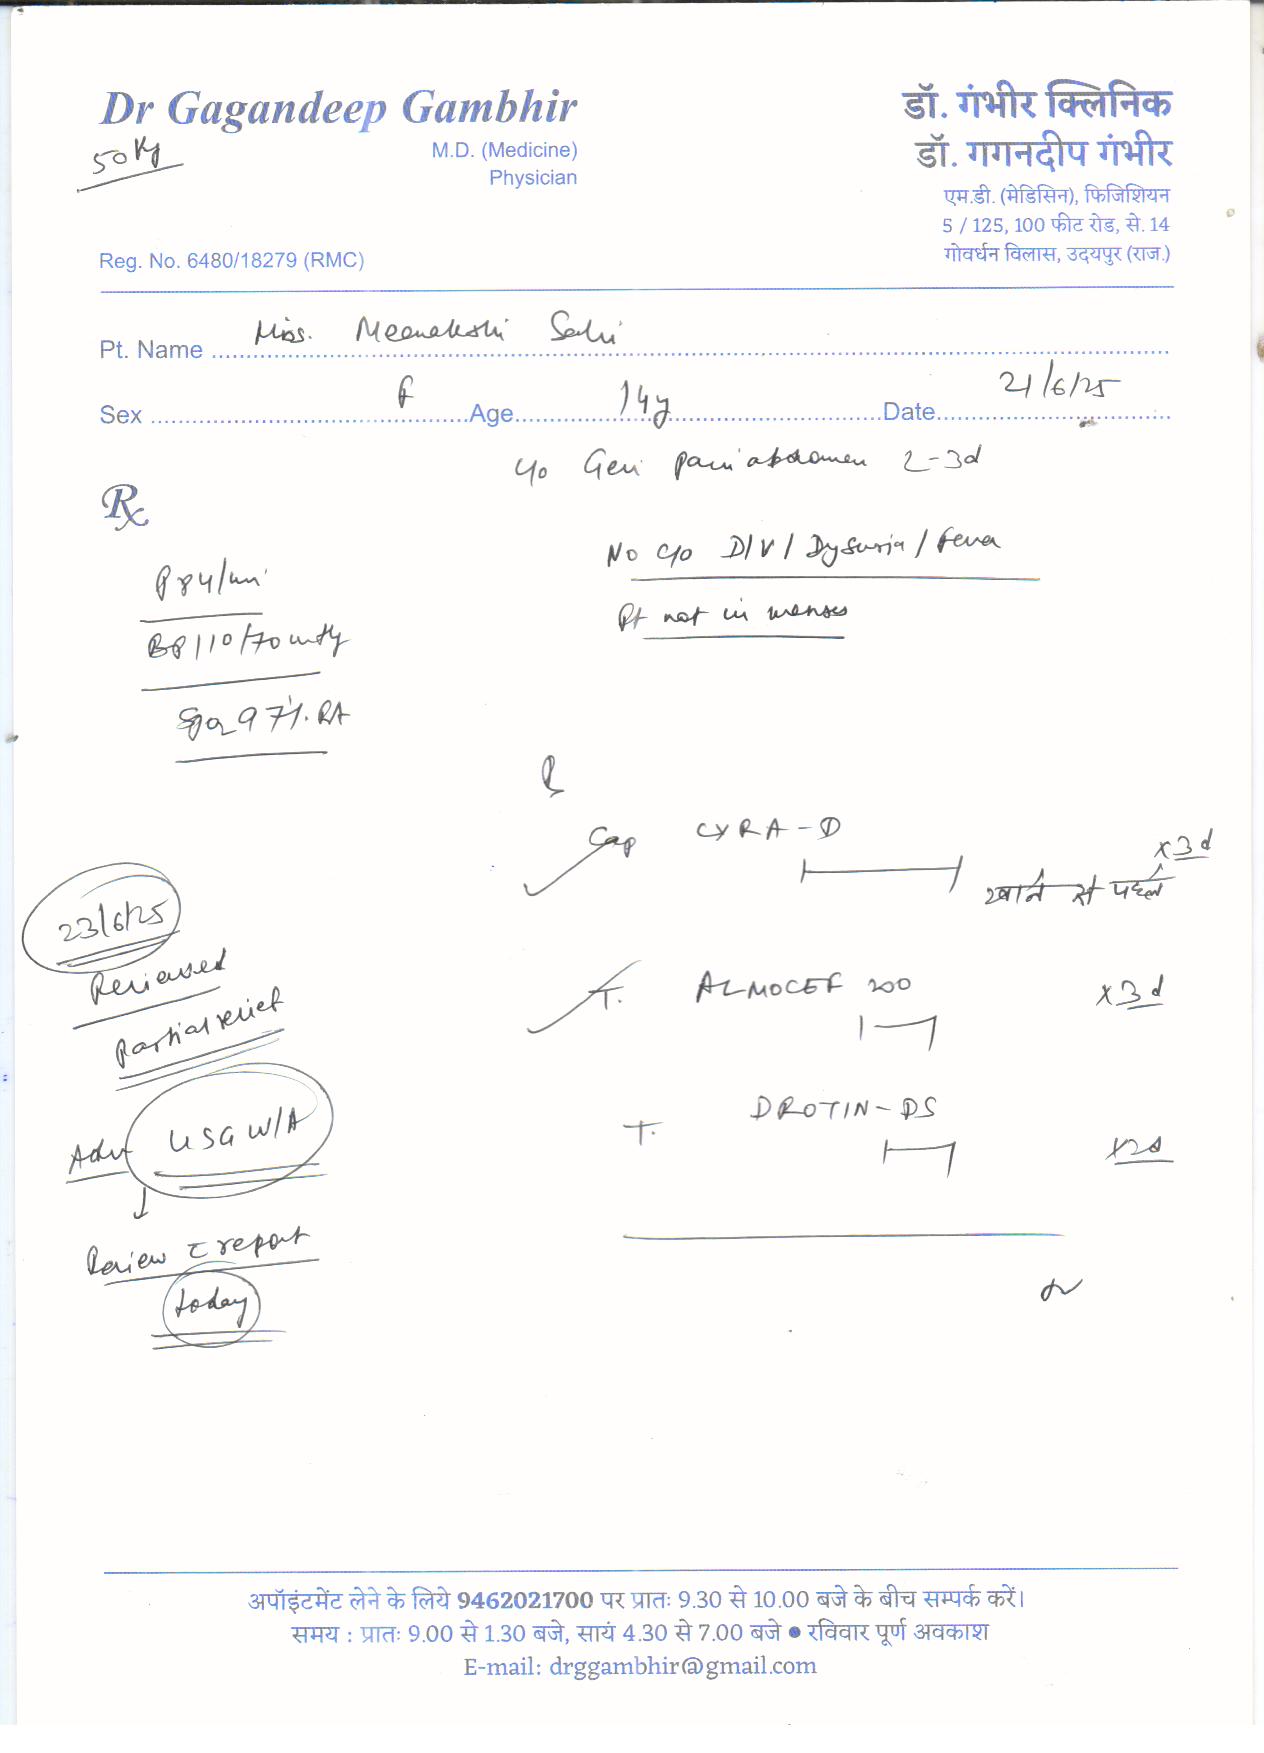 Dr Gagandeep Gambhir
50 Kg
M.D. (Medicine)
Physician
Reg. No. 6480/18279 (RMC)
डॉ. गंभीर क्लिनिक
डॉ. गगनदीप गंभीर
एम.डी. (मेडिसिन), फिजिशियन
5 / 125, 100 फीट रोड, से. 14
गोवर्धन विलास, उदयपुर (राज.)
Pt. Name Miss. Meenakshi
Sex F Age 14y Date 21/6/25
c/o Gen pain abdomen 2-3d
Rx
No c/o D/V/ Dysuria / Fever
Pt not in menses
P 84/mi
BP 110/70 mmHg
SpO2 97% RA
R
Cap CYRA-D x3d
खाने से पहले
T. ALMOCEF 200 x3d
T. DROTIN-DS x2d
23/6/25
Reviewed
Partial relief
Adv USG W/A
↓
Review c report
today
अपॉइंटमेंट लेने के लिये 9462021700 पर प्रातः 9.30 से 10.00 बजे के बीच सम्पर्क करें।
समय : प्रातः 9.00 से 1.30 बजे, सायं 4.30 से 7.00 बजे ● रविवार पूर्ण अवकाश
E-mail: drggambhir@gmail.com